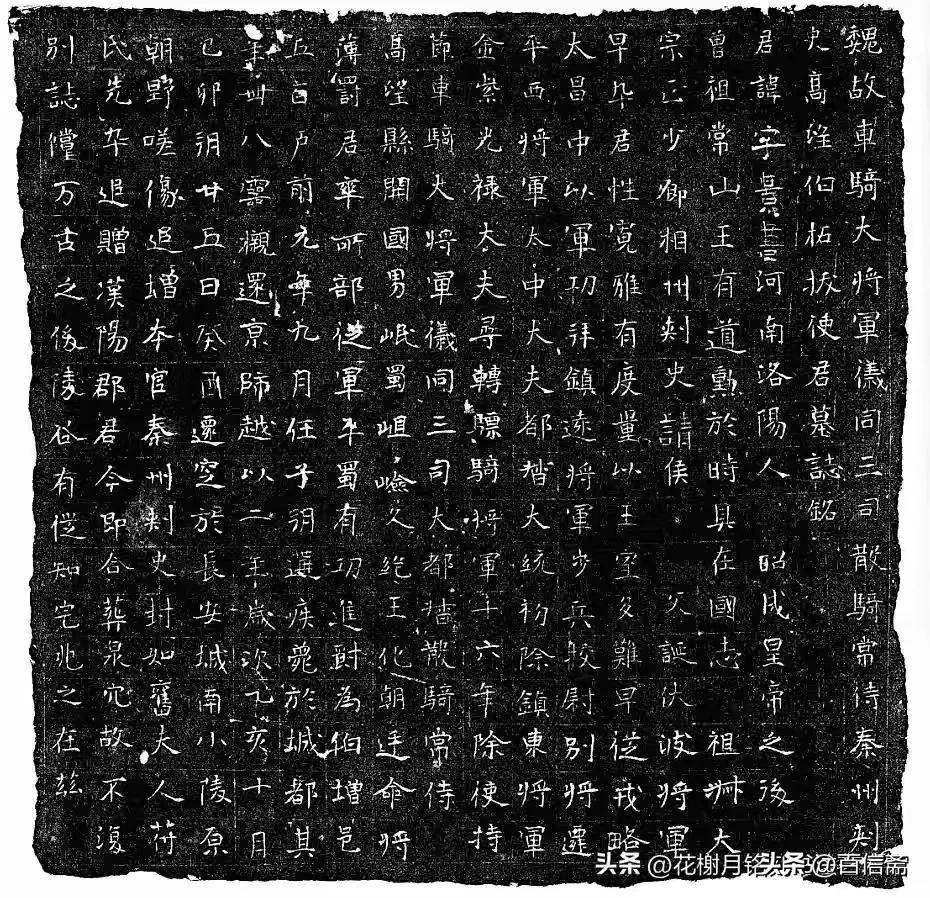 魏故車騎大將軍儀同三司散騎常侍秦州刾
史高望伯柘拔使君墓誌銘
君諱 字景書河南洛陽人 昭成皇帝之後
曾祖常山王有道勳於時具在國志 祖 大
宗正少卿相州刾史請侯 父誕伏波將軍
早卆君性寬雅有度量以王室多難早從戎略
太昌中以軍功拜鎮遠將軍步兵校尉別將遷
平西將軍太中大夫都督大統初除鎮東將軍
金紫光祿大夫尋轉驃騎將軍十六年除使持
節車騎大將軍儀同三司大都督散騎常侍
高望縣開國男岷蜀岨嶮久絕王化朝廷命將
薄罸君率所部從軍平蜀有功進封為伯增邑
五百戶前元年九月任子朔遘疾薨於城都其
年卌八靈櫬還京師越以二年歲次乙亥十月
己卯朔廿五日癸酉遷窆於長安城南小陵原
朝野嗟傷追增本官秦州刾史封如舊夫人苻
氏先卆追贈漢陽郡君今即合葬泉穴故不復
別誌儻万古之後陵谷有從知宅兆之在茲
头条 @花榭月铭 头条@百信斋